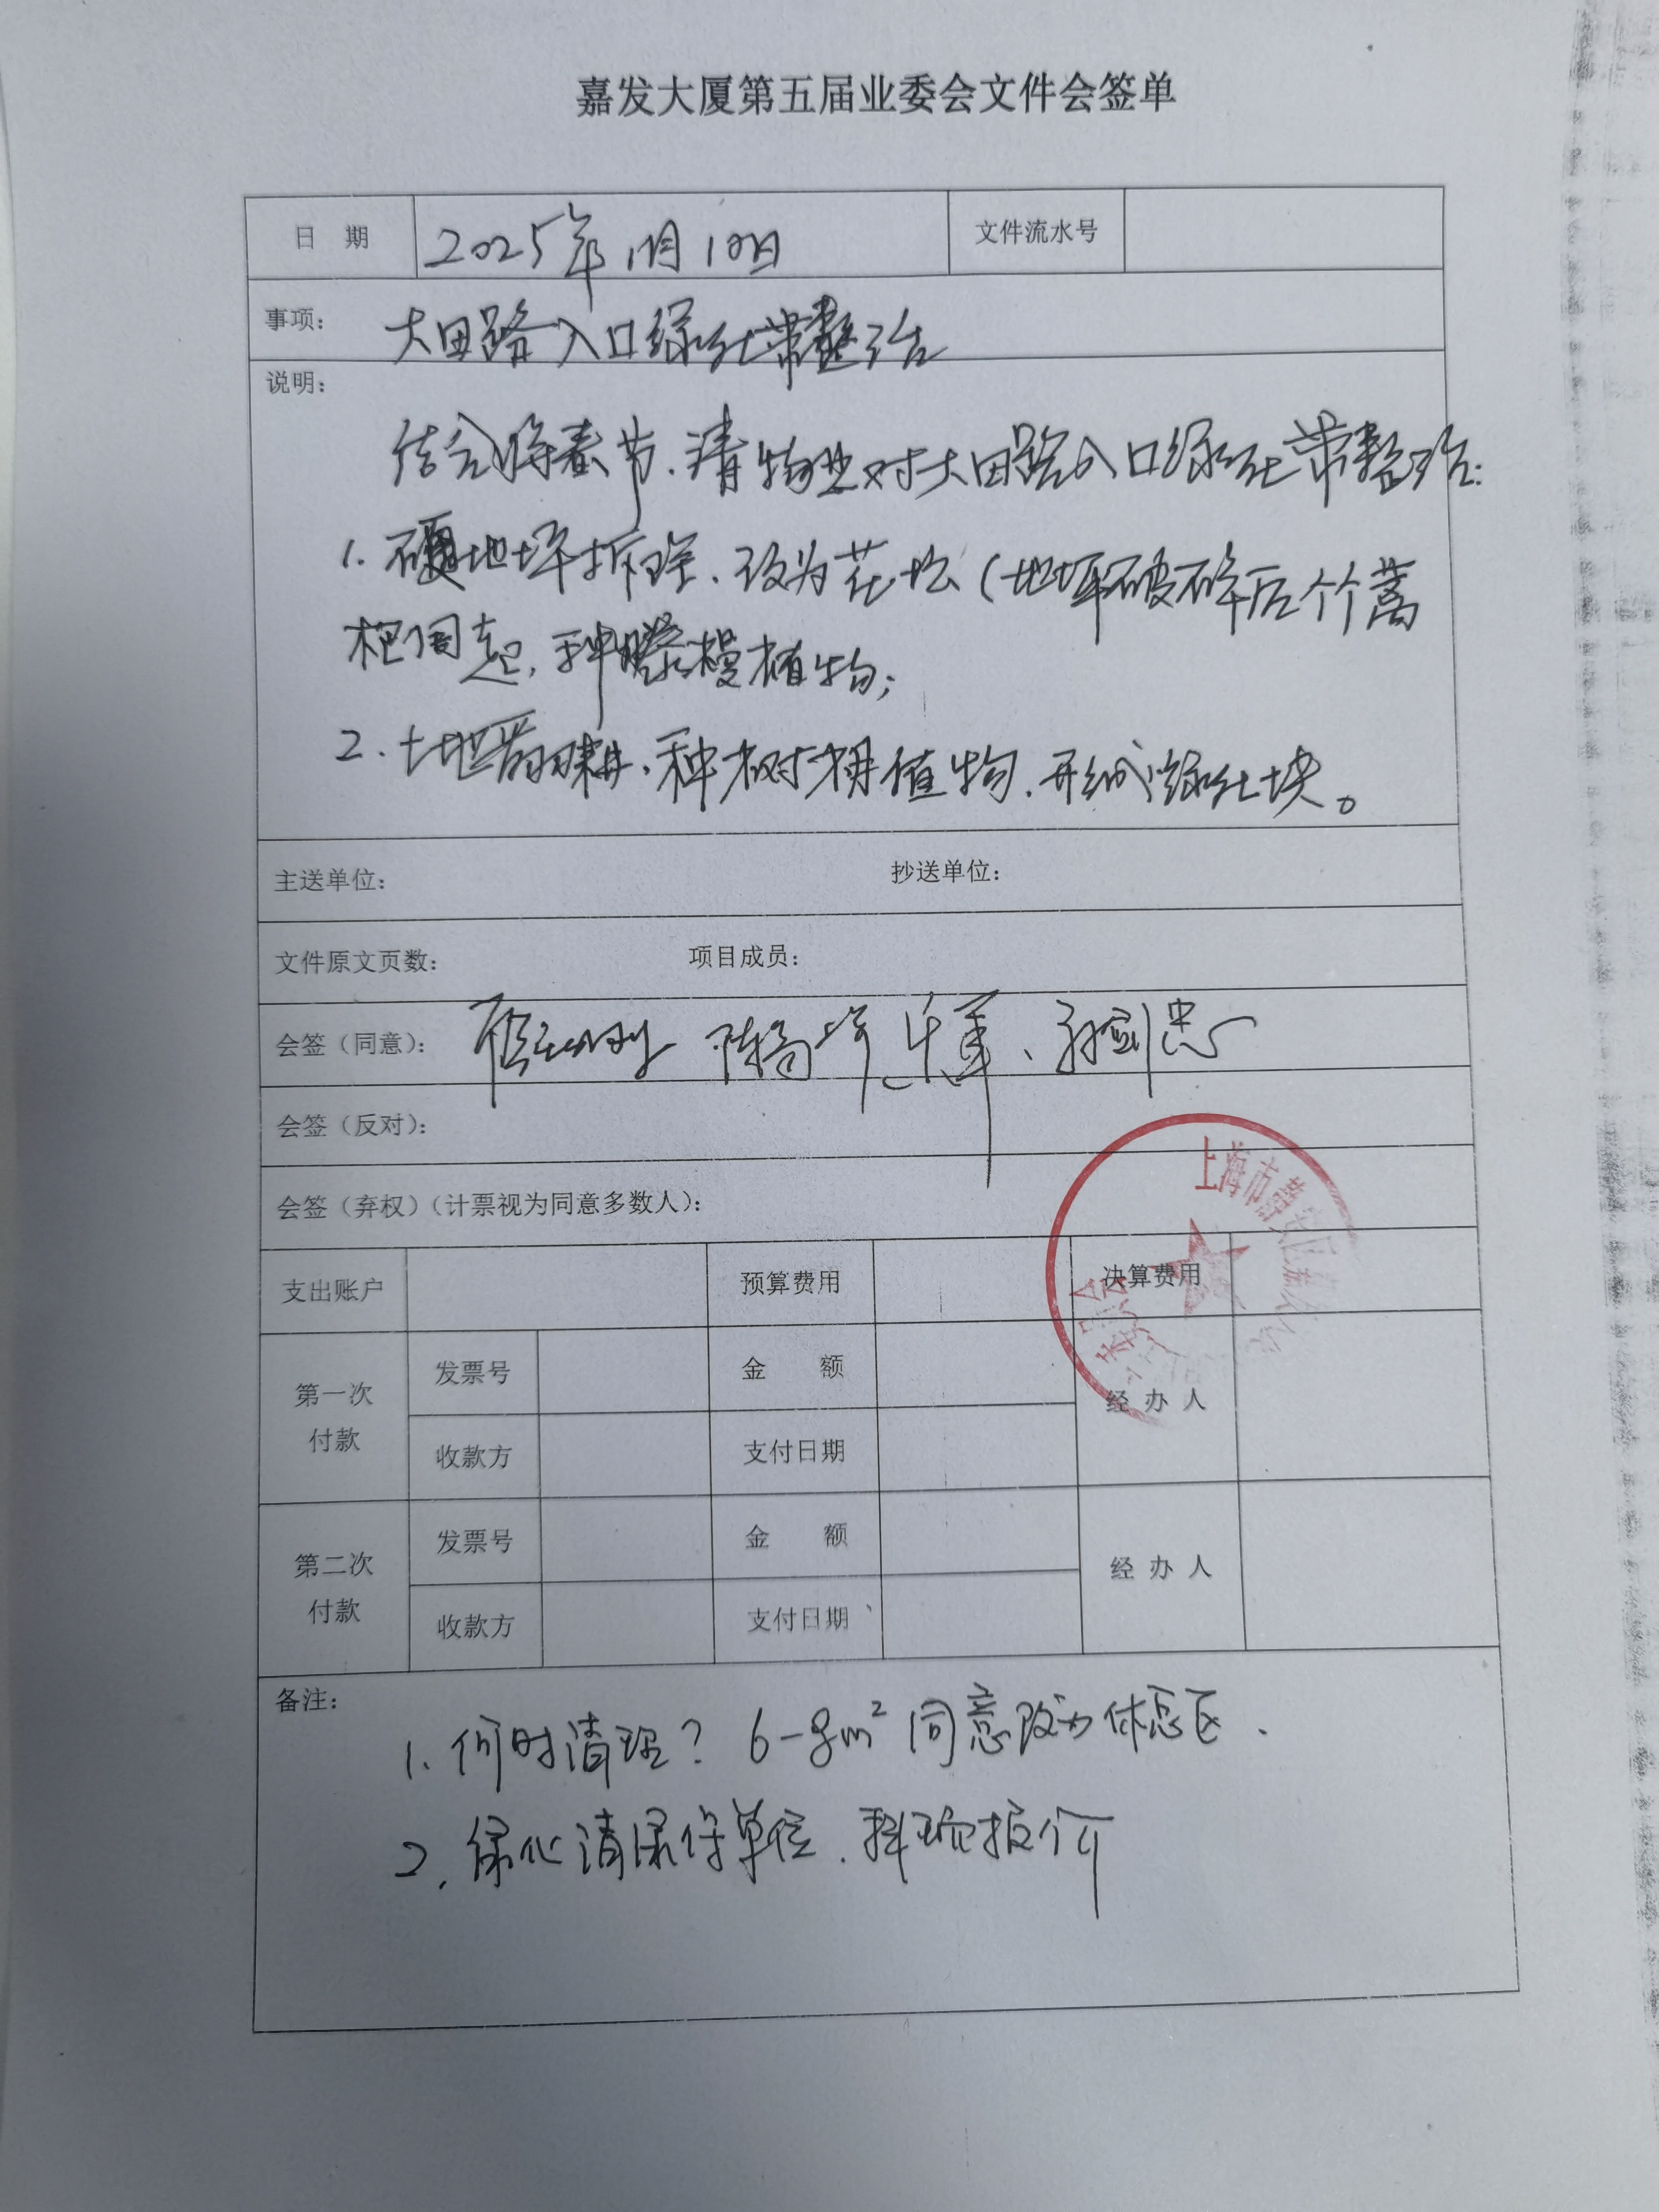 嘉发大厦第五届业委会文件会签单
日 期 2025年1月10日 文件流水号
事项: 大田路入口绿化带整治
说明:
结合将春节.请物业对大田路入口绿化带整治:
1. 硬地坪拆除、改为花坛(地坪破碎后竹篱
杷围起,种藤蔓植物;
2. 土地翻耕、种树栅植物.形成绿化块。
主送单位: 抄送单位:
文件原文页数: 项目成员:
会签(同意): 乐军、孙剑忠
会签(反对):
会签(弃权)(计票视为同意多数人):
上海市静安区嘉发大厦
委员会
支出账户 预算费用 决算费用
第一次付款 发票号 金 额 经 办 人
收款方 支付日期
第二次付款 发票号 金 额 经 办 人
收款方 支付日期
备注:
1. 何时清理? 6-8m² 同意改为休息区.
2. 绿化请保单位.报价